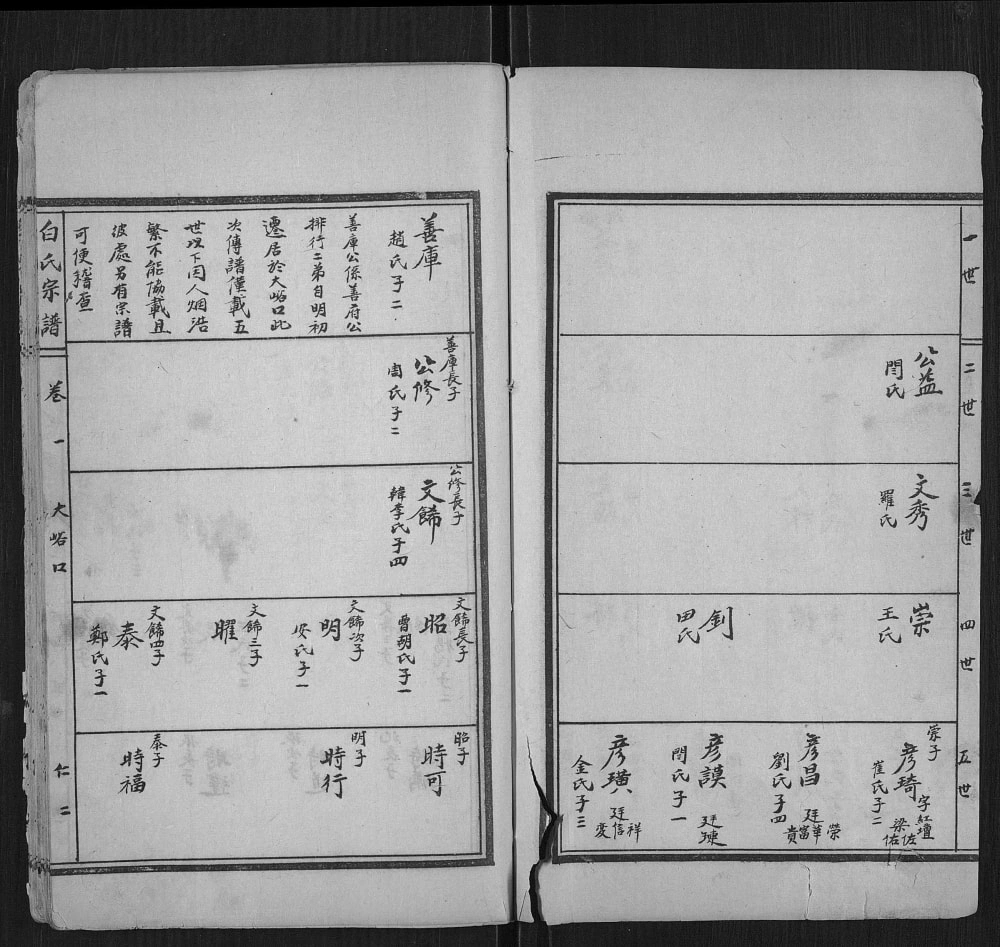 一世
二世
公益
閆氏
三世
文秀
羅氏
四世
崇
王氏
釗
田氏
五世
崇子
彥琦 字紅壇
崔氏子二 梁佐
佑
彥昌 廷華榮
富
劉氏子四 貴
彥謨 廷璉
閆氏子一
彥璜 廷信祥
金氏子三 变
善庫
趙氏子二
善庫公係善府公
排行二弟自明初
遷居於大峪口此
次傳譜僅載五
世以下因人烟浩
繁不能協載且
彼處另有宗譜
可便稽查
善庫長子
公修
氏子二
公修長子
文餙
韓李氏子四
文餙長子
昭
曹胡氏子一
文餙次子
明
安氏子一
文餙三子
曜
文餙四子
泰
鄭氏子一
昭子
時可
明子
時行
泰子
時福
白氏宗譜
卷一
大峪口
仁二